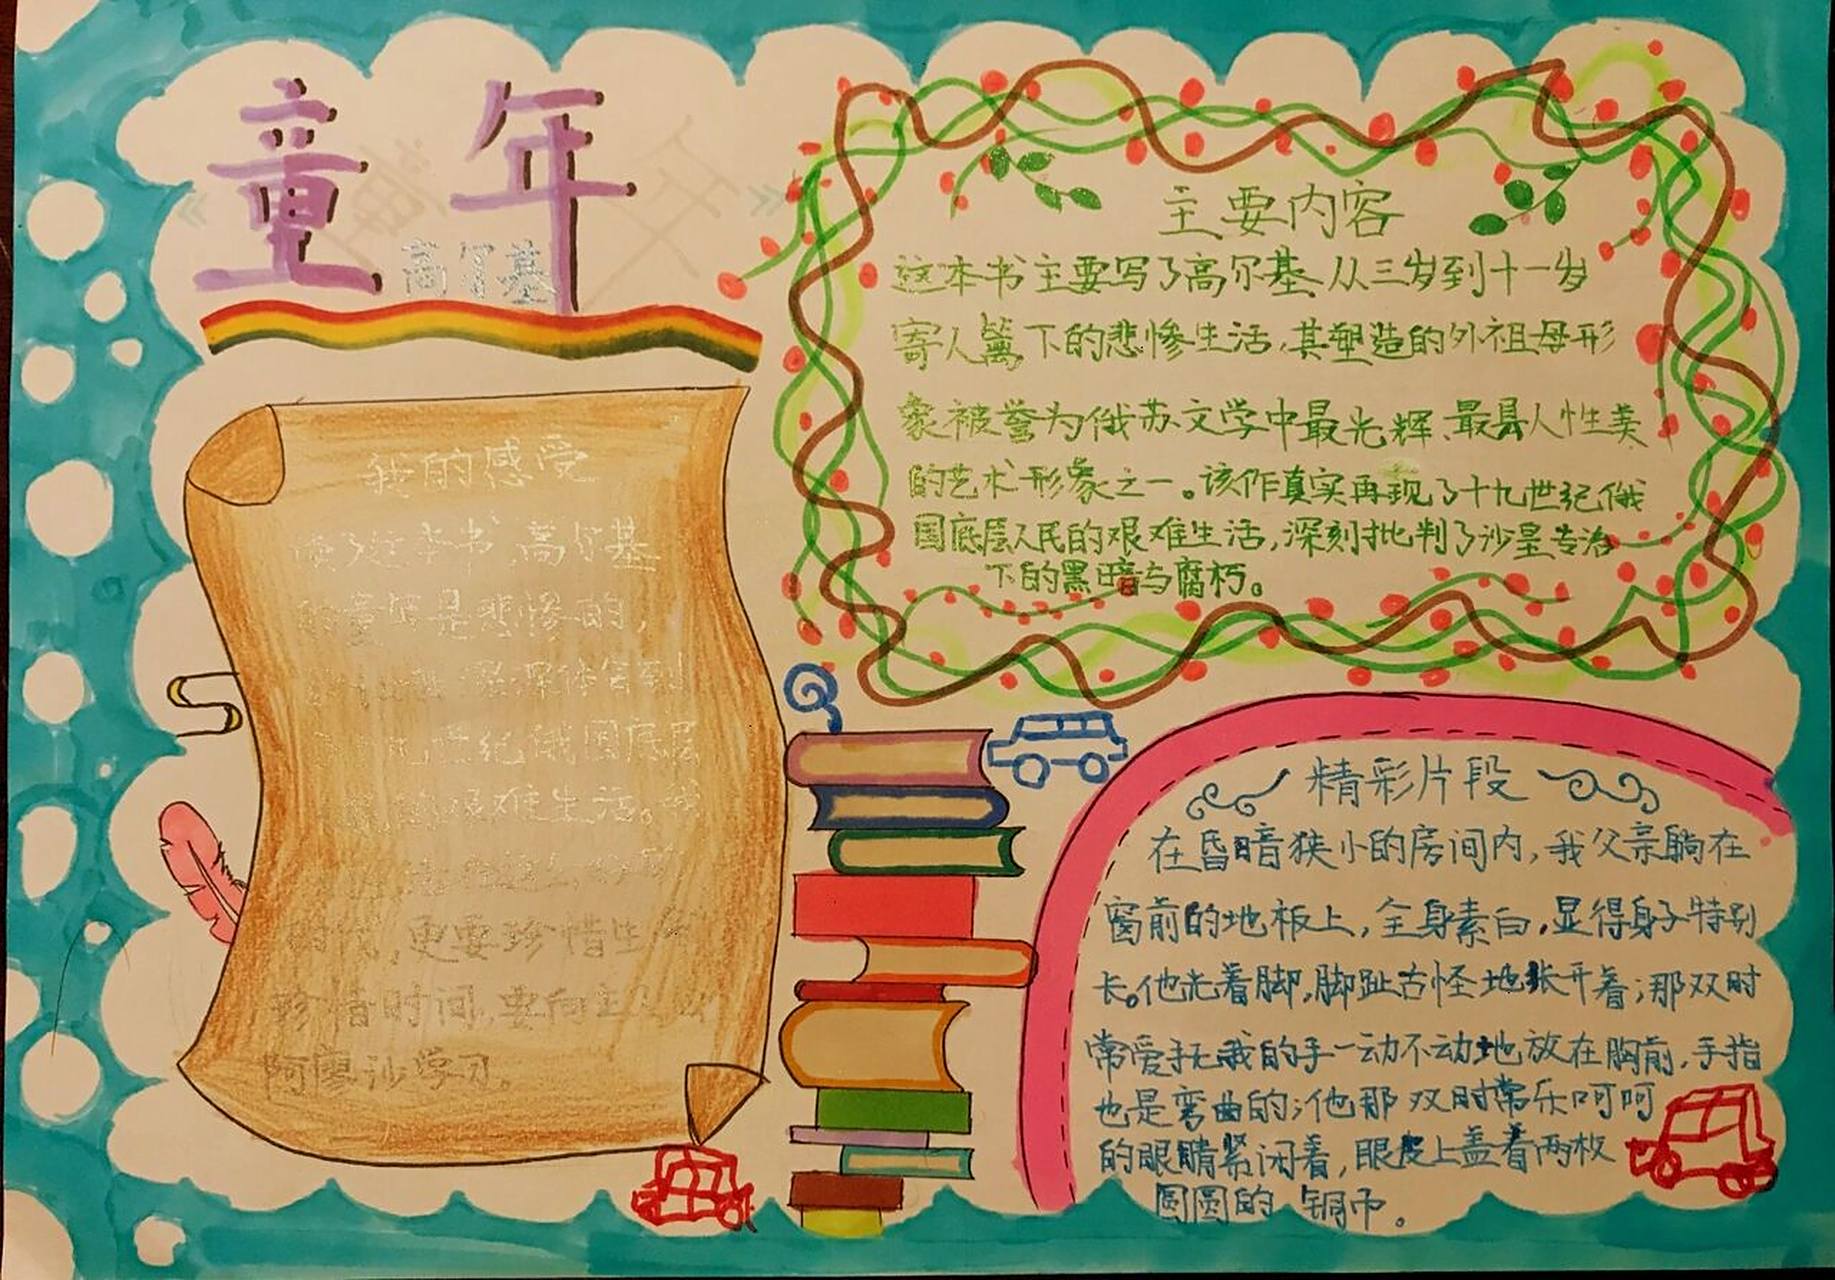 童年
高尔基
我的感受
读了这本书,高尔基
的童年是悲惨的,
深体会到
九世纪俄国底层
艰难生活。我
时代,更要珍惜生
珍惜时间,要向主
阿廖沙学习。
主要内容
这本书主要写了高尔基从三岁到十一岁
寄人篱下的悲惨生活,其塑造的外祖母形
象被誉为俄苏文学中最光辉、最具人性美
的艺术形象之一。该作真实再现了十九世纪俄
国底层人民的艰难生活,深刻批判了沙皇专治
下的黑暗与腐朽。
精彩片段
在昏暗狭小的房间内,我父亲躺在
窗前的地板上,全身素白,显得身子特别
长。他光着脚,脚趾古怪地张开着;那双时
常爱抚我的手一动不动地放在胸前,手指
也是弯曲的;他那双时常乐呵呵
的眼睛紧闭着,眼皮上盖着两枚
圆圆的铜币。